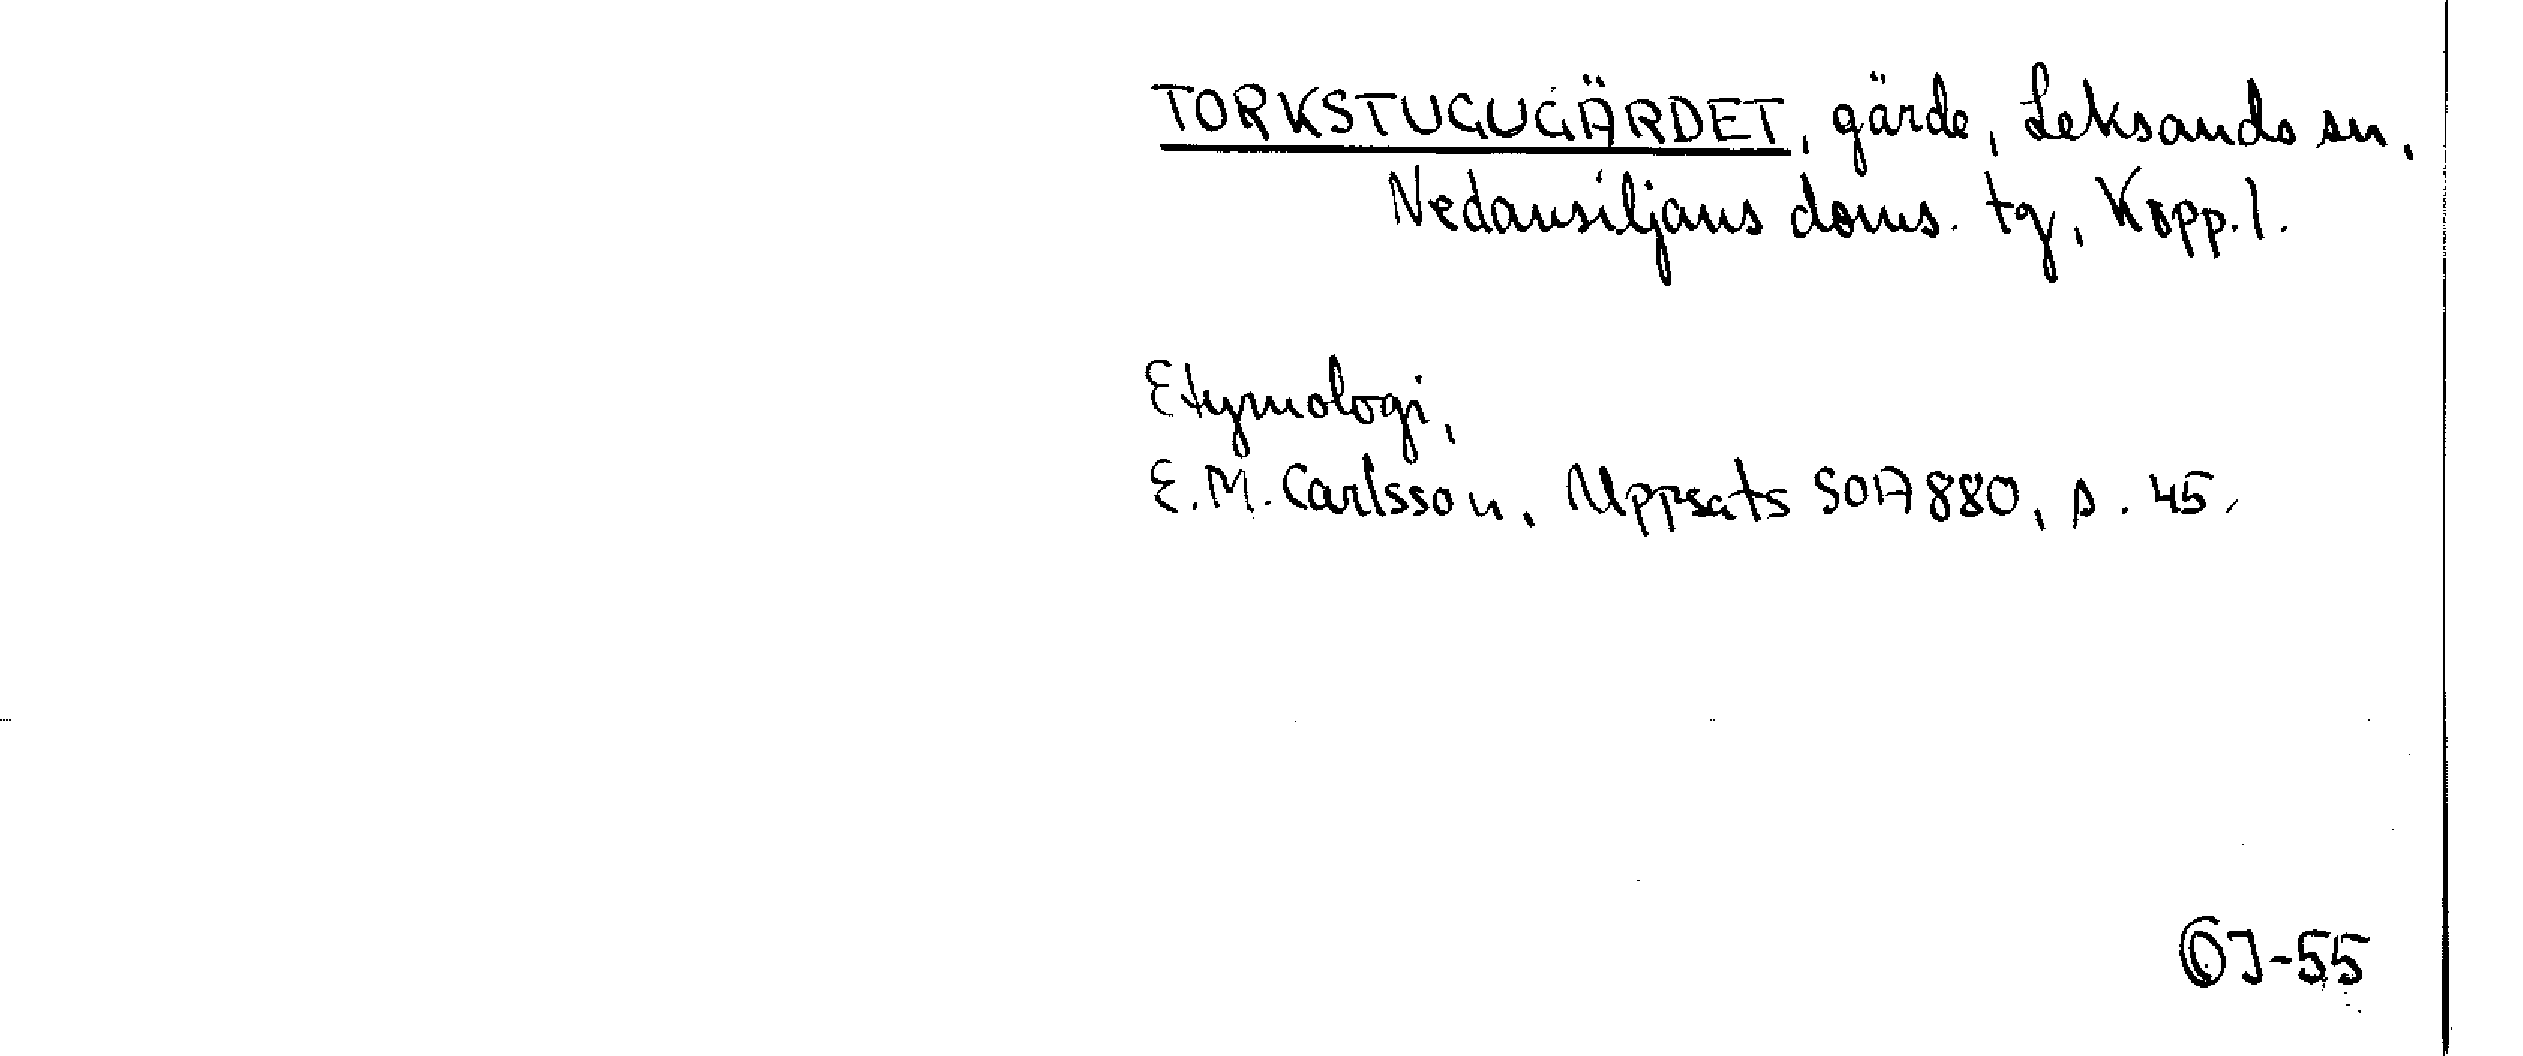 TORKSTUGUGÄRDET, gärde, Leksands sn,
Nedansiljans doms. tg, Kopp. l.
Etymologi,
E.M. Carlsson, Uppsats SOA 880, s. 45.
OJ-55